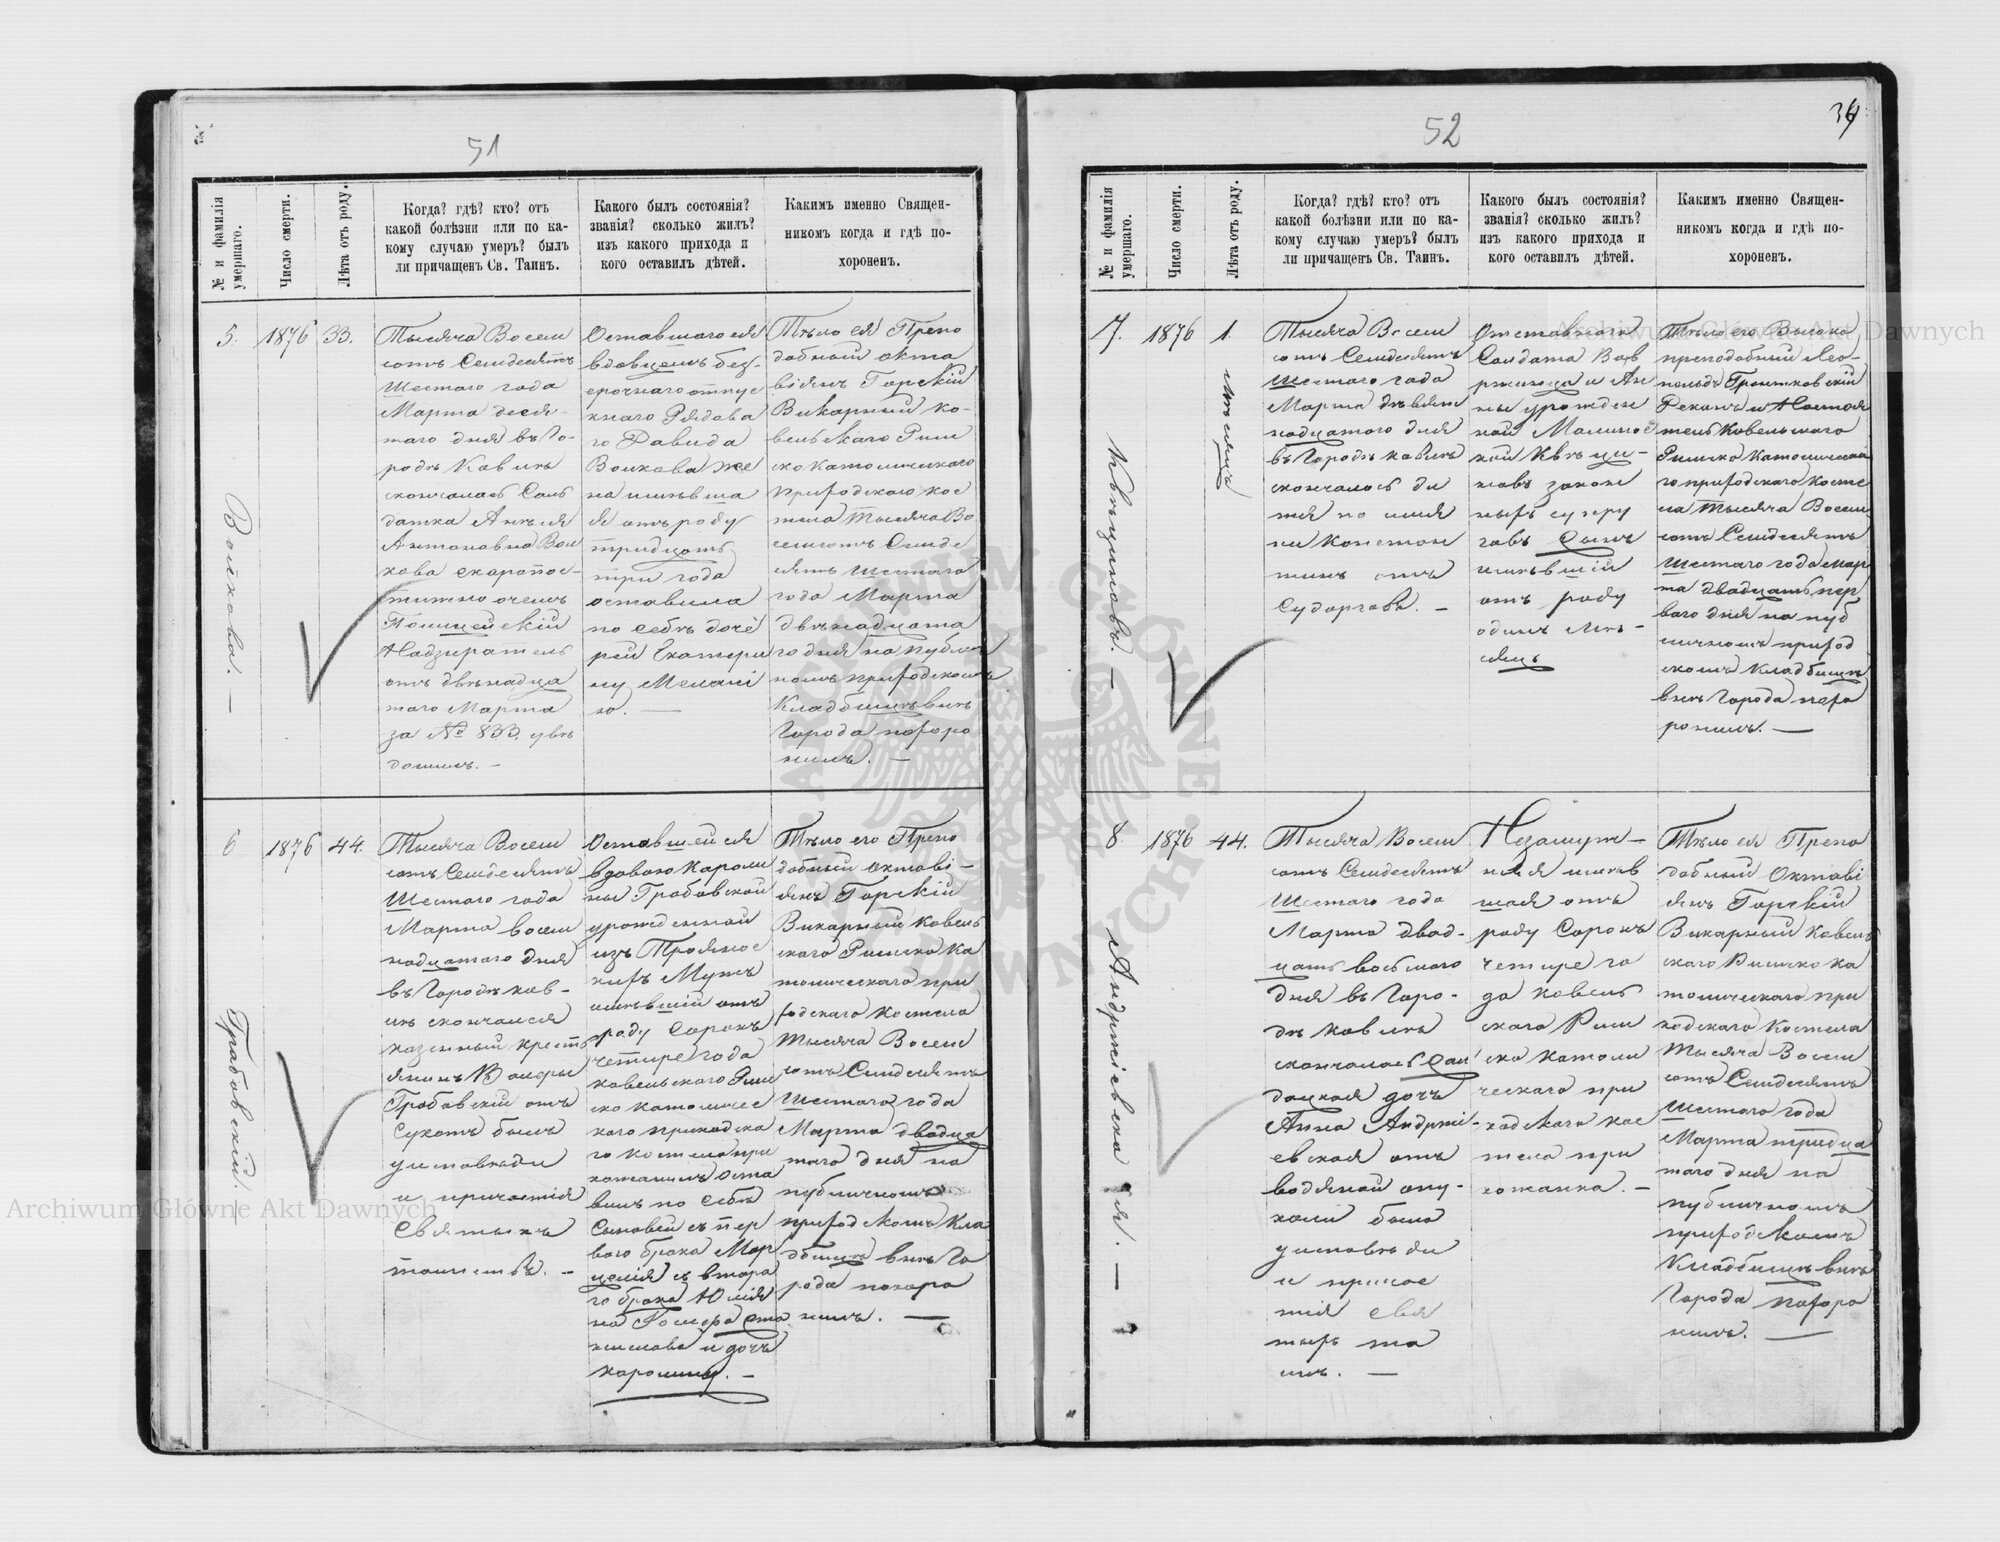 51
№ и фамилія умершаго.
Число смерти.
Лѣта отъ роду.
Когда? гдѣ? кто? отъ
какой болѣзни или по ка-
кому случаю умеръ? былъ
ли причащенъ Св. Таинъ.
Какого былъ состоянія?
званія? сколько жилъ?
изъ какого прихода и
кого оставилъ дѣтей.
Какимъ именно Священ-
никомъ когда и гдѣ по-
хоронен.
5.
Войкова. —
1876
33.
Тысяча Восем
сотъ Семдесятъ
Шестаго года
Марта деся-
таго дня въ Го-
родѣ Ковлѣ
скончалась Сол
датка Анеля
Антоновна Вои
кова скоропос-
тижно о чемъ
Полицейскій
Надзиратель
отъ двѣнадца
таго Марта
за № 833 увѣ
домилъ. —
Оставшагося
вдовцемъ без-
срочнаго отпус
кнаго Рядова
го Давида
Воикова же
на имѣвша
я отъ роду
тридцать
три года
оставила
по себѣ доче
рей Екатери
ну Мелані
ю. —
Тѣло ея Препо
добный окта
віянъ Горскій
Викарный ко-
вельскаго Рим
ско католическаго
приходскаго кос
тела тысяча Во
семсотъ Семде
сятъ Шестаго
года Марта
двѣнадцата
го дня на публич
номъ приходскомъ
Кладбищѣ внѣ
Города похоро
нилъ. —
6
Грабовскій. —
1876
44.
Тысяча Восем
сотъ Семдесятъ
Шестаго года
Марта восем
надцатаго дня
въ Городѣ ков-
лѣ скончался
казенный крестъ
янинъ Валеры
Грабовскій отъ
Сухотъ былъ
уисповѣди
и причастія
Святыхъ
таинствъ. —
Оставшейся
вдовою Кароли
ны Грабовской
урожденной
изъ Трояновс
кихъ Мужъ
имѣвшій отъ
роду Сорокъ
четире года
ковельскаго Рим
ско католичес
каго приходска
го костела при
хожанинъ Оста
вилъ по себѣ
Сыновей съ пер
ваго брака Мар
целія съ втора
го брака Юлія
на Іосифа Ста
нислава и дочъ
каролину. —
Тѣло его Препо
добный Октаві-
янъ Горскій
Викарный Ковель
скаго Римско Ка
толическаго при
ходскаго Костела
тысяча Восем
сотъ Семдесятъ
Шестаго года
Марта двадца
таго дня на
публичномъ
приходскомъ Кла
дбищѣ внѣ Го
рода похоро
нилъ. —
52
34
№ и фамилія умершаго.
Число смерти.
Лѣта отъ роду.
Когда? гдѣ? кто? отъ
какой болѣзни или по ка-
кому случаю умеръ? былъ
ли причащенъ Св. Таинъ.
Какого былъ состоянія?
званія? сколько жилъ?
изъ какого прихода и
кого оставилъ дѣтей.
Какимъ именно Священ-
никомъ когда и гдѣ по-
хоронен.
7.
1876
1.
Мѣсяцъ
Тысяча Восем
сотъ Семдесятъ
Шестаго года
Марта девят
надцатаго дня
въ Городѣ ковлѣ
скончалось ди
тя по имя
ни Констан
тинъ отъ
Судорговъ. —
Отставнаго
Солдата Вав
ржинца и Ан
ны урожден
ной
закон
ныхъ супру
говъ Сынъ
имѣвшій
отъ роду
одинъ мѣ-
сяцъ
Тѣло его Высоко
преподобный Лео-
польдъ
Деканъ и Настоя
тель Ковельскаго
Римско Католическа
го приходскаго Косте
ла тысяча Восем
сотъ Семдесятъ
Шестаго года мар
та двадцать пер
ваго дня на пуб
личномъ приход
скомъ Кладбищѣ
внѣ Города похо
ронилъ. —
8.
Андржіевская. —
1876
44.
Тысяча Восем
сотъ Семдесятъ
Шестаго года
Марта двад-
цать восьмаго
дня въ Горо-
дѣ ковлѣ
скончалась Сол
дацкая дочъ
Анна Андржі-
евская отъ
водяной опу-
холи была
уисповѣди
и причас
тія Свя
тыхъ та
инъ. —
Незамуж-
няя имѣв
шая отъ
роду Сорокъ
четире го
да ковель
скаго Рим
ско католи
ческаго при
ходскаго кос
тела при
хожанка. —
Тѣло ея Препо
добный Октаві
янъ Горскій
Викарный Ковель
скаго Римско Ка
толическаго при
ходскаго Костела
тысяча Восем
сотъ Семдесятъ
Шестаго года
Марта тридца
таго дня на
публичномъ
приходскомъ
Кладбищѣ внѣ
Города похоро
нилъ. —
Archiwum Główne Akt Dawnych
Archiwum Główne Akt Dawnych
ARCHIWUM GŁÓWNE AKT DAWNYCH